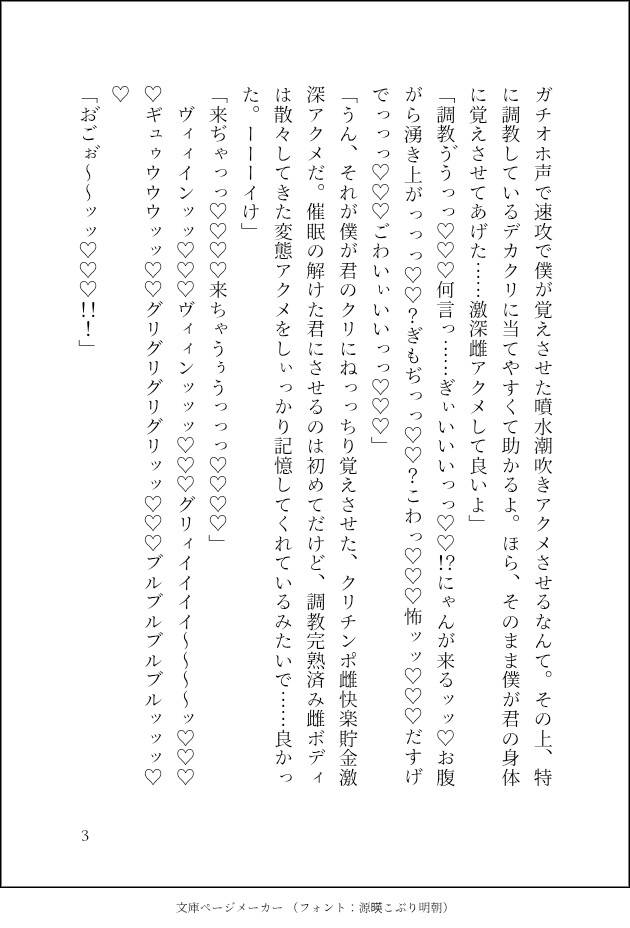 ガチオホ声で速攻で僕が覚えさせた噴水潮吹きアクメさせるなんて。その上、特
に調教しているデカクリに当てやすくて助かるよ。ほら、そのまま僕が君の身体
に覚えさせてあげた……激深雌アクメして良いよ」
「調教ゔうっっ♡♡♡何言っ……ぎぃいいいっっ♡♡!?にゃんが来るッッ♡お腹
がら湧き上がっっっ♡♡?ぎもぢっっ♡♡?こわっ♡♡♡怖ッッ♡♡♡だすげ
でっっっ♡♡♡ごわいぃいいっっ♡♡♡」
「うん、それが僕が君のクリにねっっちり覚えさせた、クリチンポ雌快楽貯金激
深アクメだ。催眠の解けた君にさせるのは初めてだけど、調教完熟済み雌ボディ
は散々してきた変態アクメをしぃっかり記憶してくれているみたいで……良かっ
た。ーーーイけ」
「来ぢゃっっ♡♡♡♡来ちゃうぅうっっっ♡♡♡♡」
ヴィィインッッ♡♡♡ヴィィンッッッ♡♡♡グリィイイイイ～～～～ッ♡♡♡
♡ギュゥウウウッッ♡♡グリグリグリグリッッ♡♡♡ブルブルブルブルッッッ♡
♡
「お゙ごぉ゙～～ッッ♡♡♡!!！」
3
文庫ページメーカー（フォント：源暎こぶり明朝）